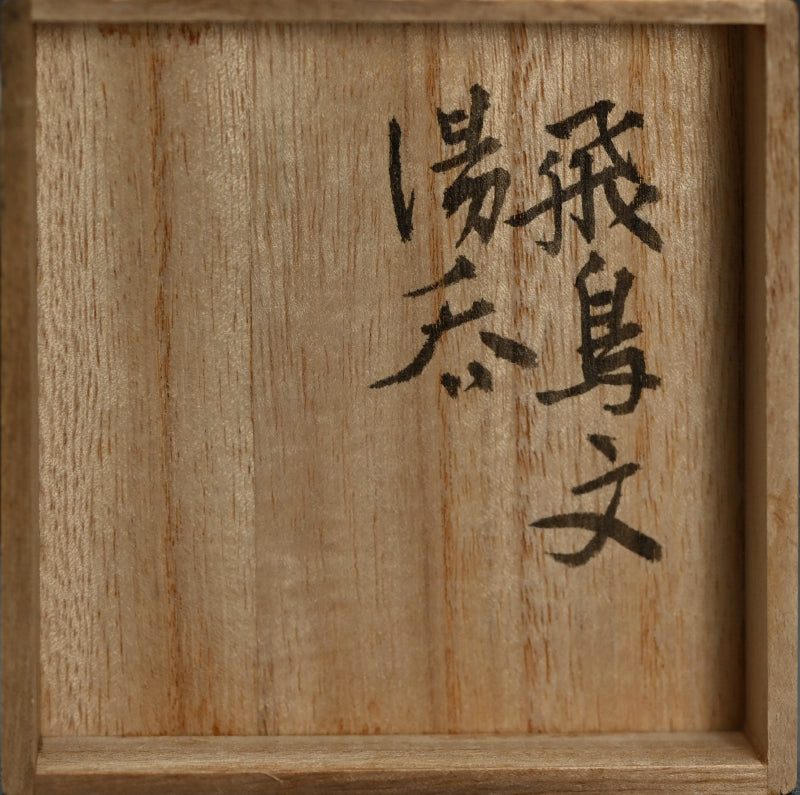 飛鳥文
湯呑